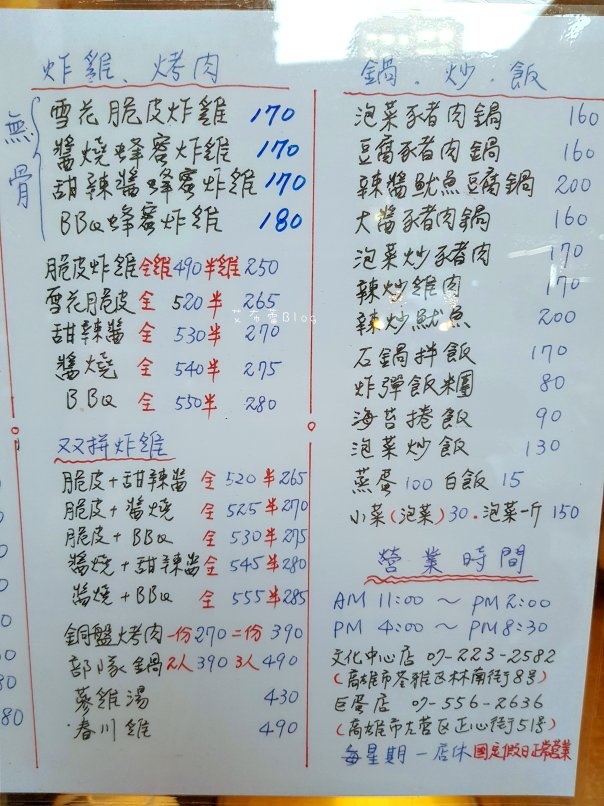 炸雞、烤肉
無骨
雪花脆皮炸雞 170
醬燒蜂蜜炸雞 170
甜辣醬蜂蜜炸雞 170
BBQ蜂蜜炸雞 180
脆皮炸雞 全雞490 半雞250
雪花脆皮 全 520 半 265
甜辣醬 全 530 半 270
醬燒 全 540 半 275
BBQ 全 550 半 280
双拼炸雞
脆皮+甜辣醬 全 520 半265
脆皮+醬燒 全 525 半270
脆皮+BBQ 全 530 半275
醬燒+甜辣醬 全 545 半280
醬燒+BBQ 全 555 半285
銅盤烤肉 一份270 二份 390
部隊鍋 2人390 3人490
蔘雞湯 430
春川雞 490
鍋．炒．飯
泡菜豬肉鍋 160
豆腐豬肉鍋 160
辣醬魷魚豆腐鍋 200
大醬豬肉鍋 160
泡菜炒豬肉 170
辣炒雞肉 170
辣炒魷魚 200
石鍋拌飯 170
炸彈飯糰 80
海苔捲飯 90
泡菜炒飯 130
蒸蛋 100 白飯 15
小菜(泡菜)30．泡菜一斤 150
營業時間
AM 11:00 ～ PM 2:00
PM 4:00 ～ PM 8:30
文化中心店 07-223-2582
(高雄市苓雅區林南街8号)
巨蛋店 07-556-2636
(高雄市左營区正心街51号)
每星期一店休 國定假日正常營業
艾布蕾Blog
80